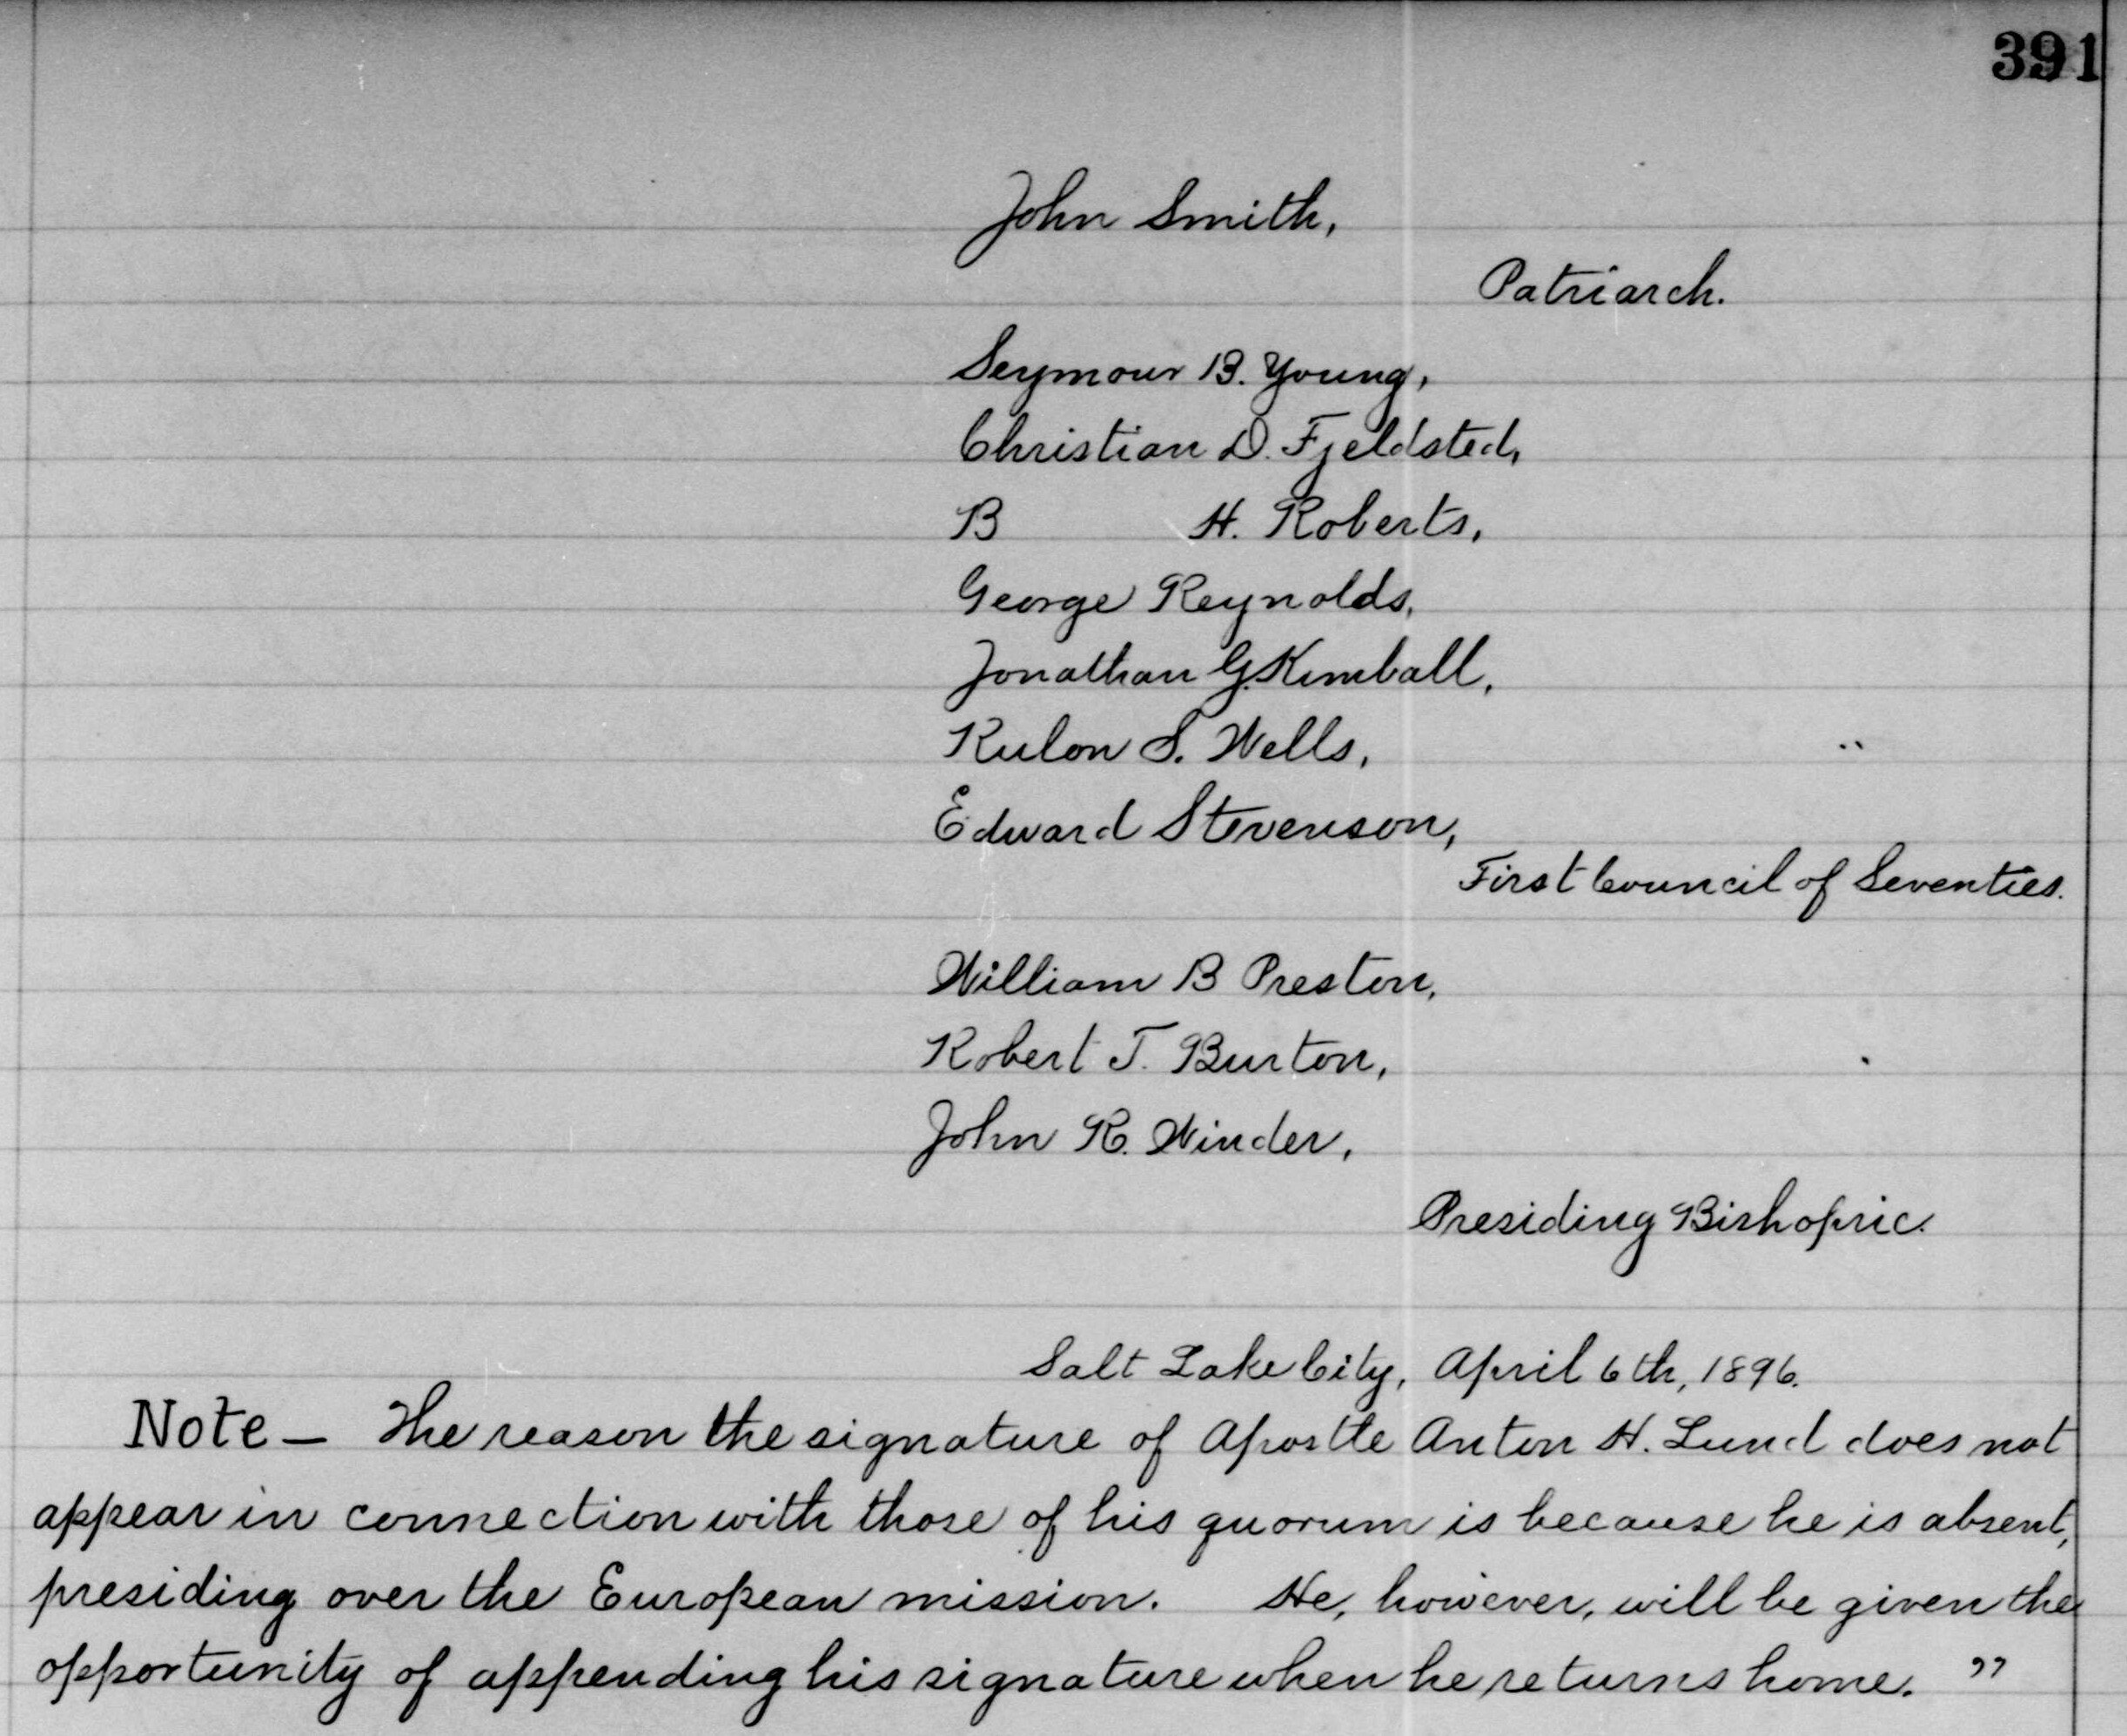 391
John Smith,
Patriarch.
Seymour B. Young,
Christian D. Fjeldsted,
B H. Roberts,
George Reynolds,
Jonathan G. Kimball,
Rulon S. Wells,
Edward Stevenson,
First Council of Seventies.
William B Preston,
Robert T. Burton,
John R. Winder,
Presiding Bishopric.
Salt Lake City, April 6th, 1896.
Note — The reason the signature of Apostle Anton H. Lund does not
appear in connection with those of his quorum is because he is absent,
presiding over the European mission. He, however, will be given the
opportunity of appending his signature when he returns home. ”